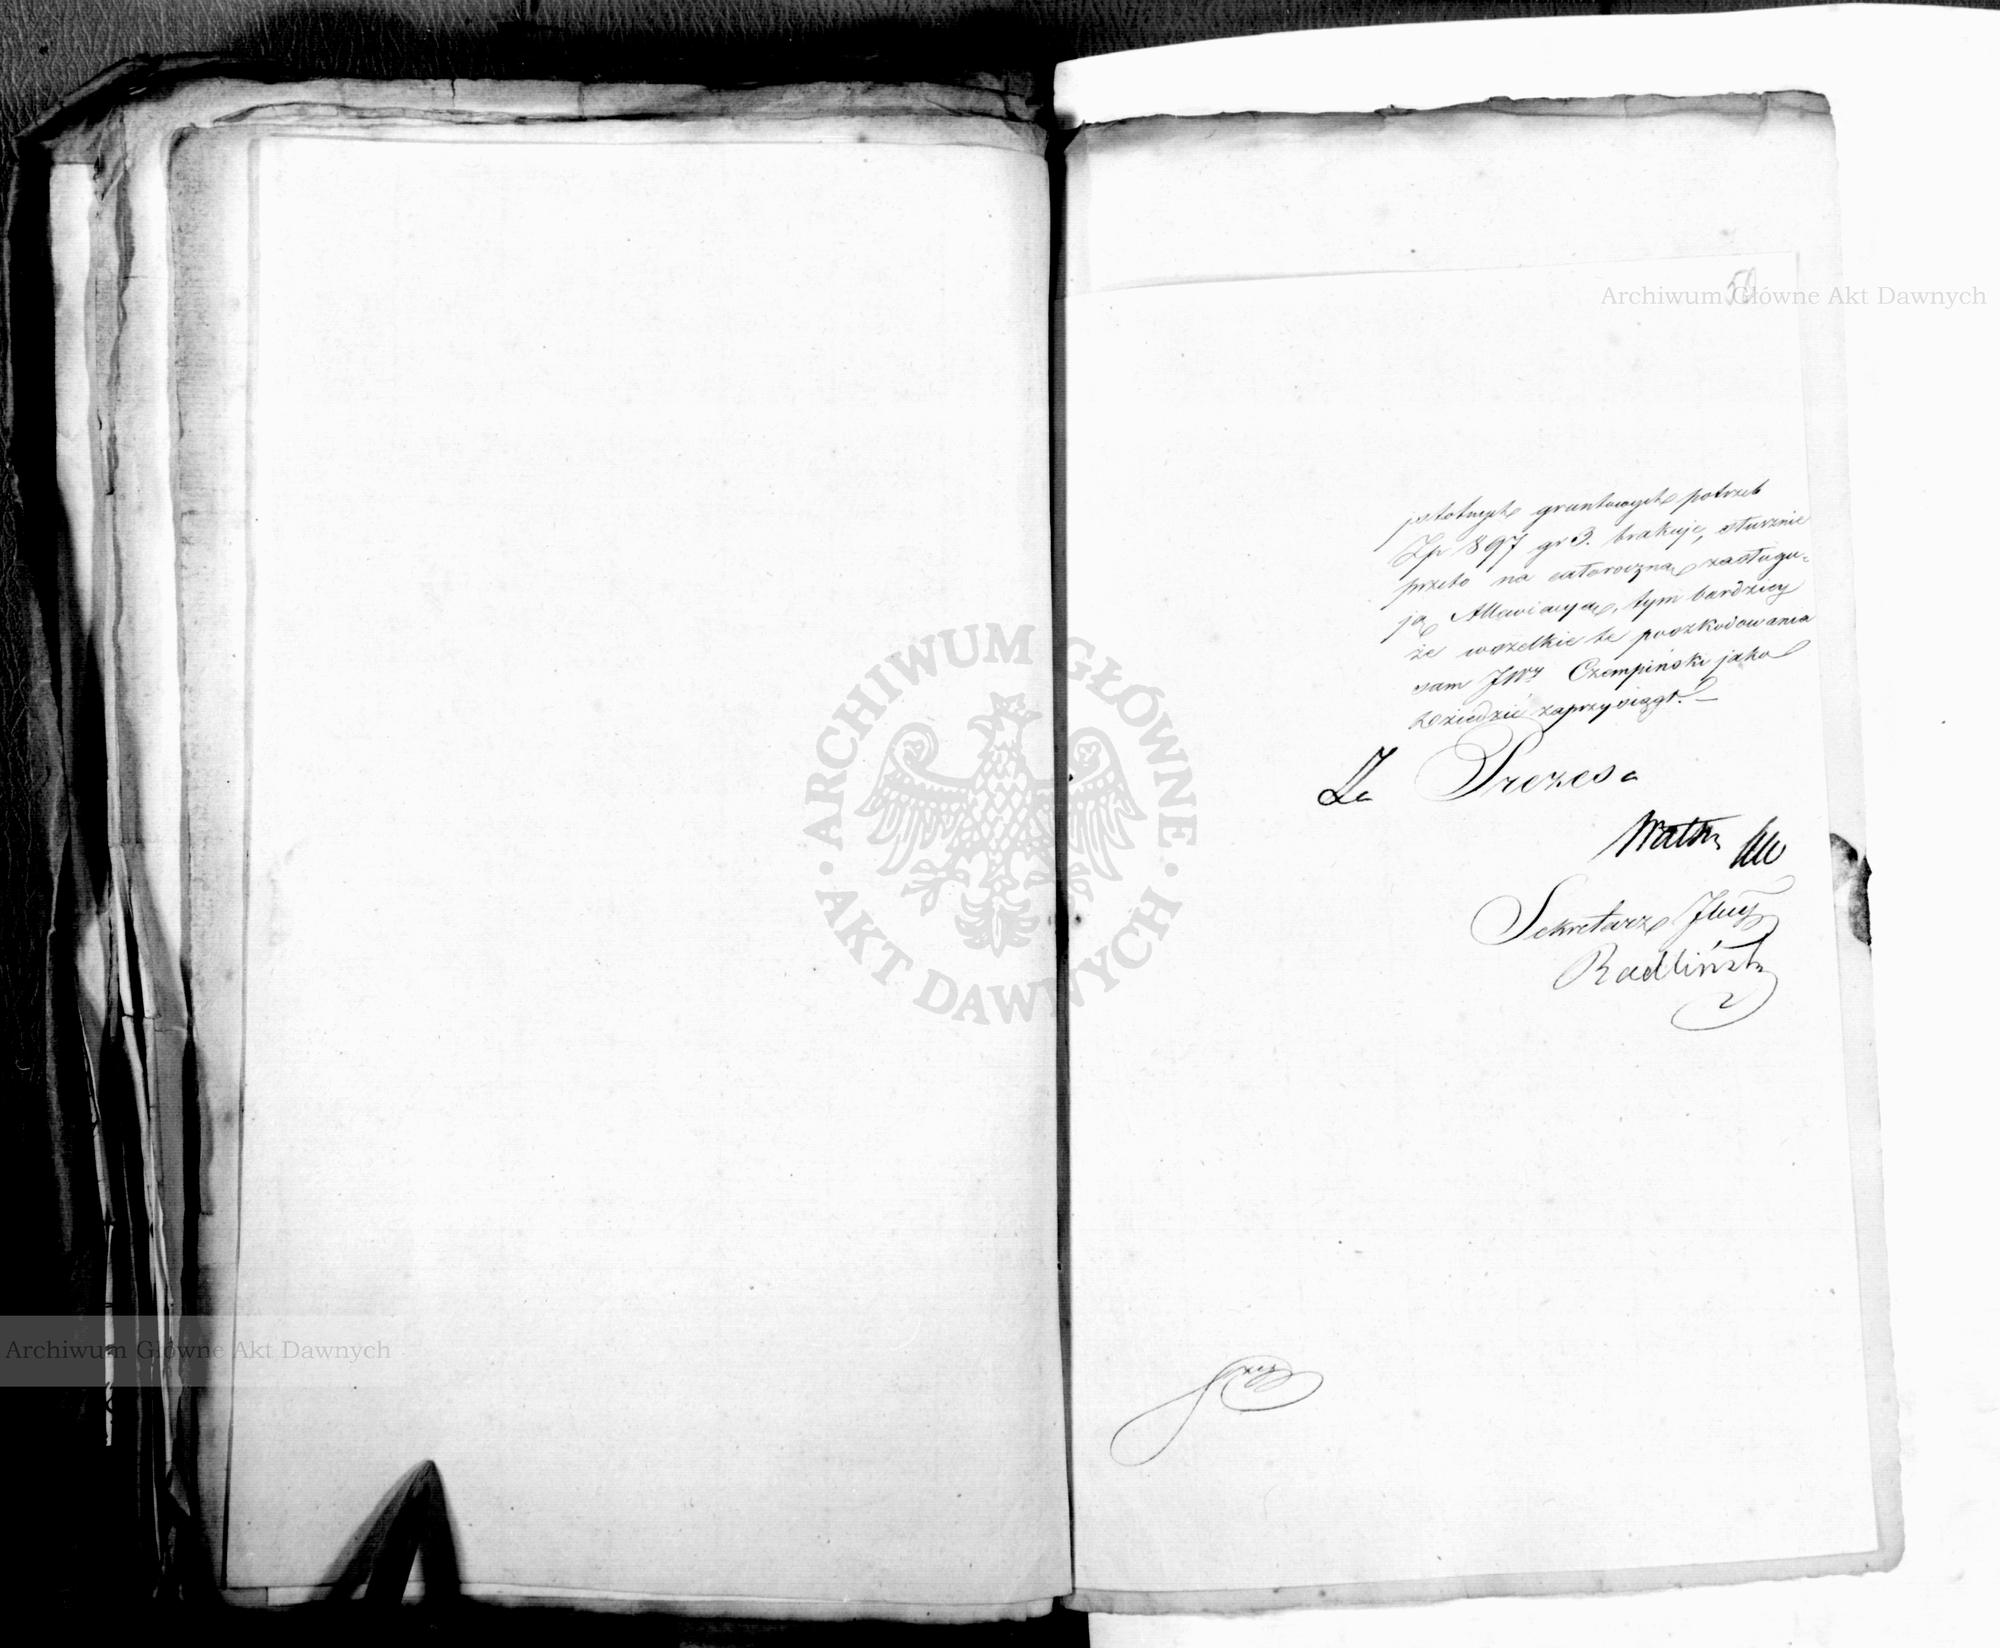 50
Archiwum Główne Akt Dawnych
istotnych gruntowych potrzeb
Zp 897 gr 3. brakuje, słusznie
przeto na całoroczną zasługu-
ją Allewiacyą, tym bardziey
że wszelkie te poszkodowania
sam JWy Czempiński jako
Dziedzic zaprzysiągł.
Za Prezesa
Sekretarz Jlny
Radliński
ARCHIWUM GŁÓWNE
AKT DAWNYCH
Archiwum Główne Akt Dawnych